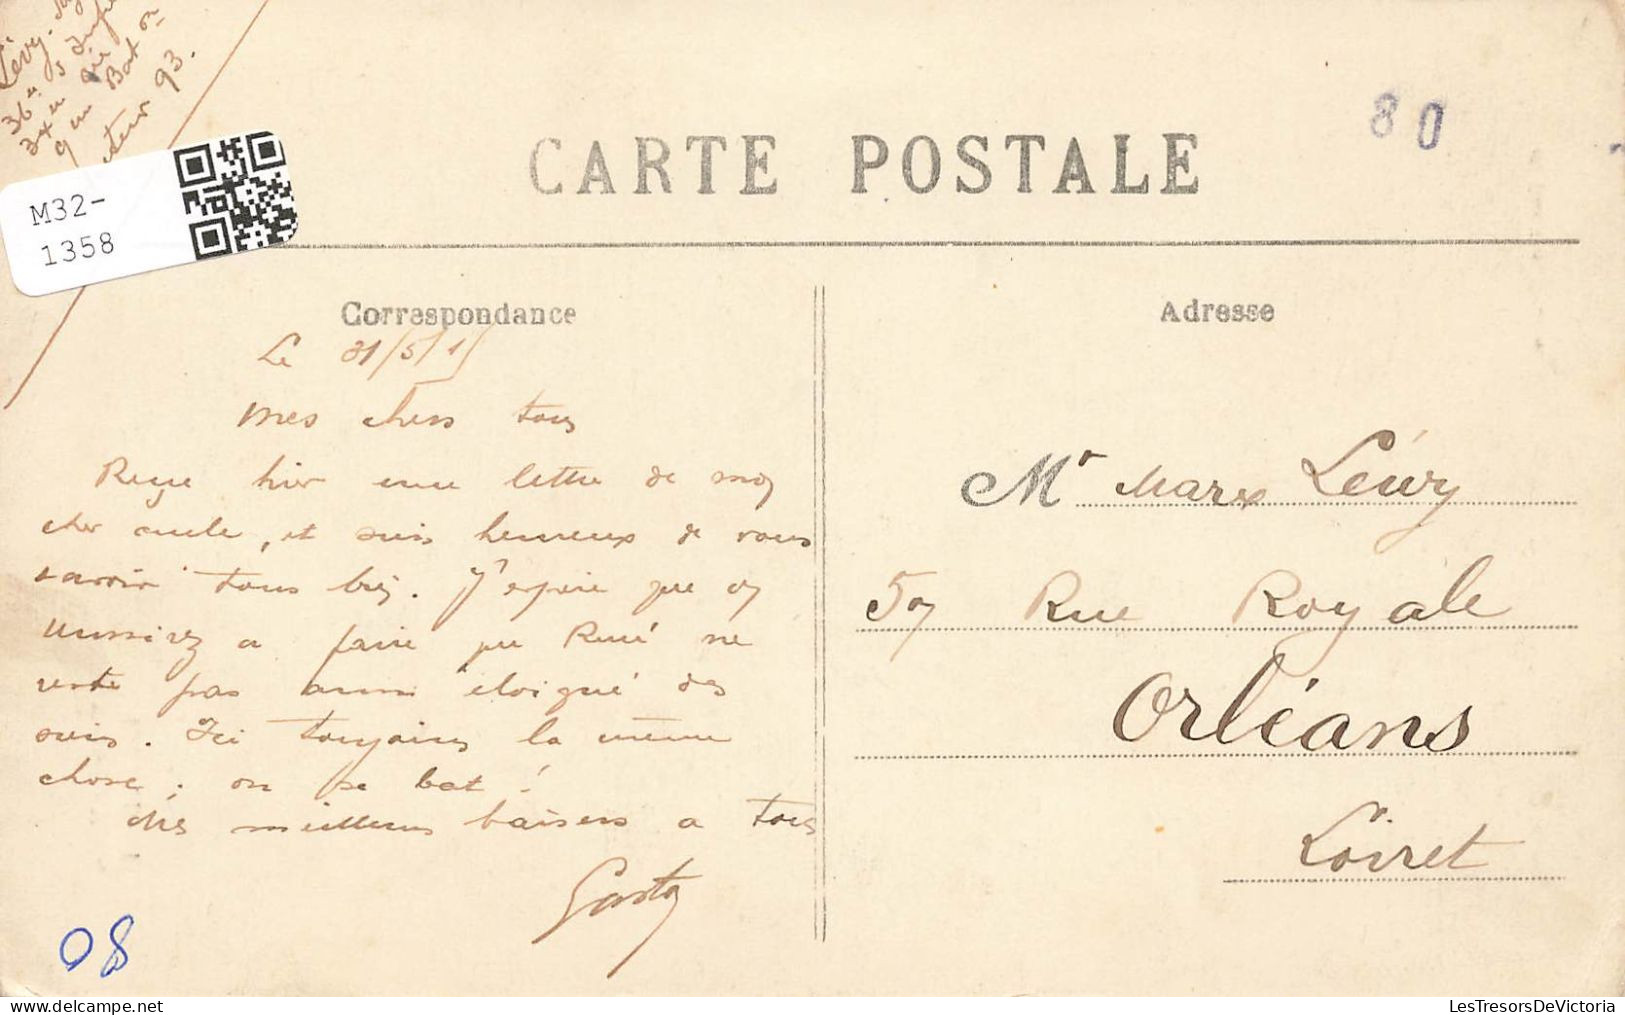 Lévy
36e
9 em Bat on
cteur 93.
M32-
1358
80
CARTE POSTALE
Correspondance
Le 31/5/15
Mes chers tous
Reçu hier une lettre de mon
cher oncle, et suis heureux de vous
savoir tous bien. J'espère que
a faire que René ne
reste pas aussi éloigné des
siens. Ici toujours la même
chose ; on se bat !
Mes meilleurs baisers a tous
Gaston
08
Adresse
Mr Marx Lévy
57 Rue Royale
Orléans
Loiret
LesTresorsDeVictoria